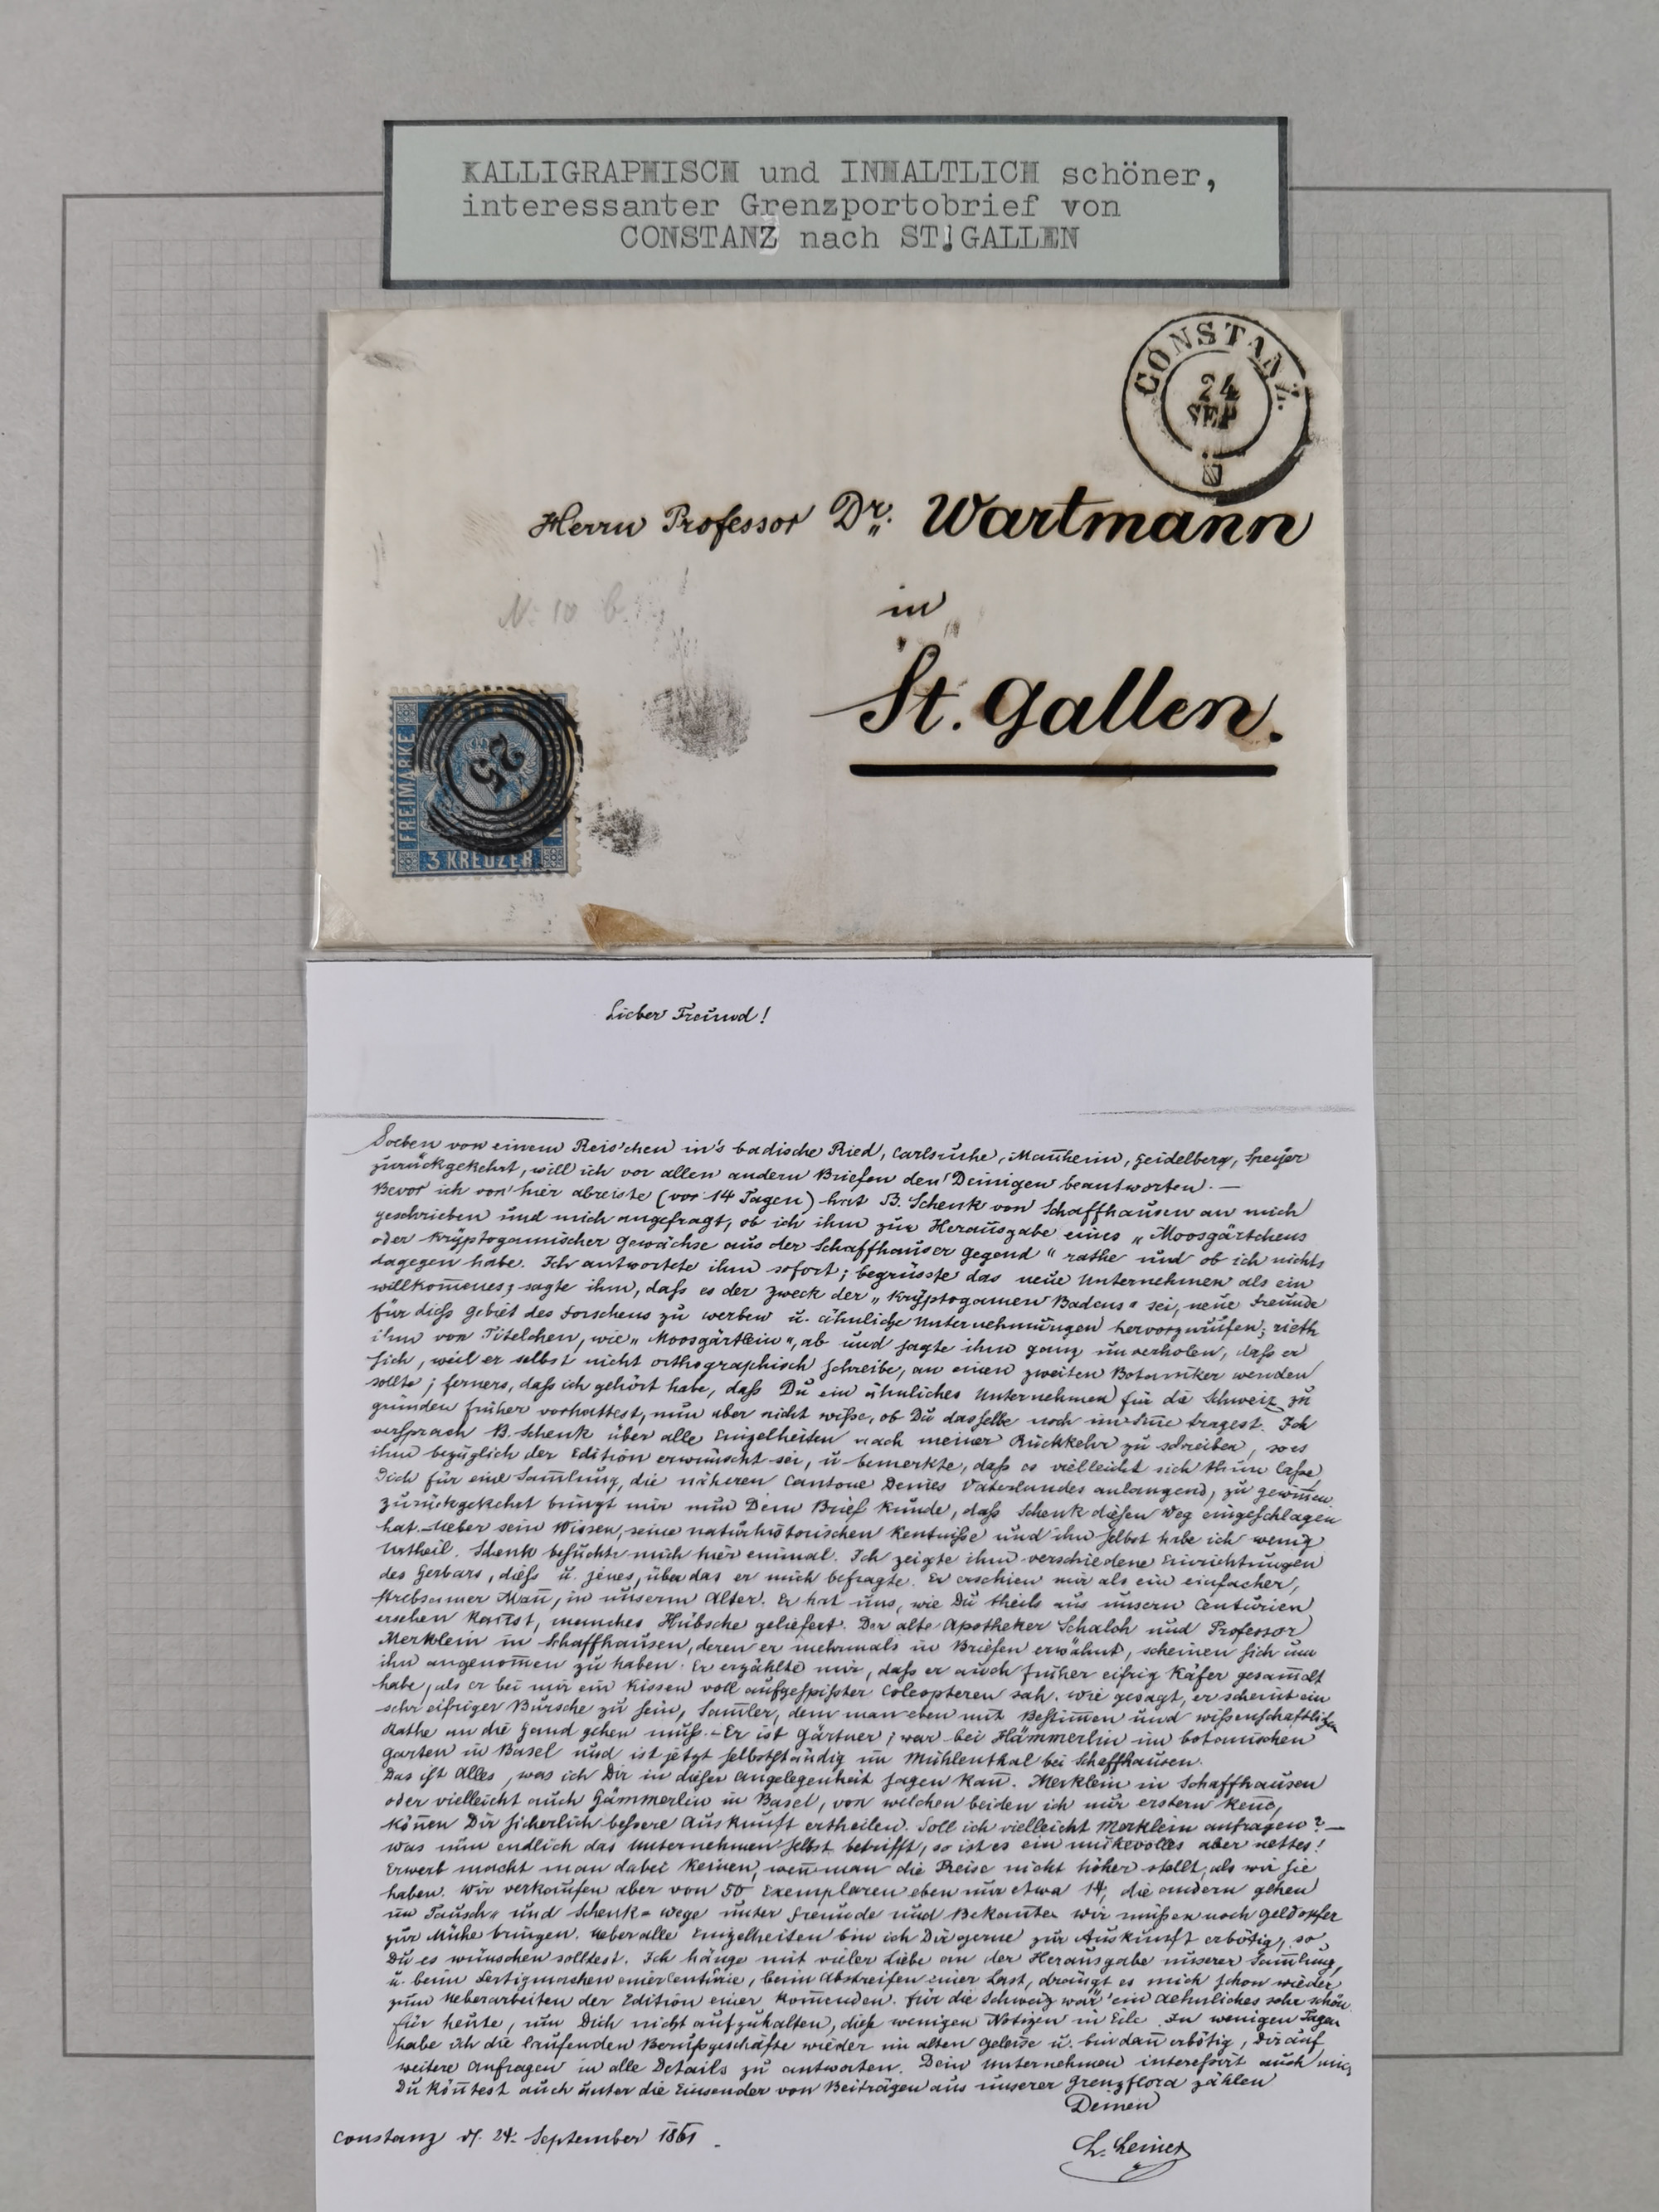 KALLIGRAPHISCH und INHALTLICH schöner,
interessanter Grenzportobrief von
CONSTANZ nach ST.GALLEN
CONSTANZ.
24
SEP
Herrn Professor Dr. Wartmann
in
St. Gallen.
N. 10 b.
25
FREIMARKE
3 KREUZER
Lieber Freund!
Soeben von einem Reis'chen in's badische Ried, Carlsruhe, Man̄heim, Heidelberg, Speyer
zurückgekehrt, will ich vor allen andern Briefen den Deinigen beantworten. —
Bevor ich von hier abreiste (vor 14 Tagen) hat B. Schenk von Schaffhausen an mich
geschrieben und mich angefragt, ob ich ihm zur Herausgabe eines „Moosgärtchens
oder kryptogamischer Gewächse aus der Schaffhauser Gegend" rathe und ob ich nichts
dagegen habe. Ich antwortete ihm sofort; begrüsste das neue Unternehmen als ein
willkom̄enes; sagte ihm, daß es der Zweck der „Kryptogamen Badens" sei, neue Freunde
für dieß Gebiet des Forschens zu werben u. ähnliche Unternehmungen hervorzurufen; rieth
ihm von Titelchen, wie „Moosgärtlein", ab und sagte ihm ganz unverholen, daß er
sich, weil er selbst nicht orthographisch schreibe, an einen zweiten Botaniker wenden
sollte; ferners, daß ich gehört habe, daß Du ein ähnliches Unternehmen für die Schweiz zu
gründen früher vorhattest, nun aber nicht wiße, ob Du dasselbe noch im Sin̄e tragest. Ich
versprach B. Schenk über alle Einzelheiten nach meiner Rückkehr zu schreiben, so es
ihm bezüglich der Edition erwünscht sei, u. bemerkte, daß es vielleicht sich thun laße,
Dich für eine Sam̄lung, die näheren Cantone Deines Vaterlandes anlangend, zu gewin̄en.
Zurückgekehrt bringt mir nun Dein Brief Kunde, daß Schenk diesen Weg eingeschlagen
hat. Ueber sein Wissen, seine naturhistorischen Kentniße und ihn selbst habe ich wenig
Urtheil. Schenk besuchte mich hier einmal. Ich zeigte ihm verschiedene Einrichtungen
des Herbars, dieß u. jenes, über das er mich befragte. Er erschien mir als ein einfacher,
strebsamer Man̄, in unserm Alter. Er hat uns, wie Du theils aus unsern Centurien
ersehen kan̄st, manches Hübsche geliefert. Der alte Apotheker Schalch und Professor
Merklein in Schaffhausen, deren er mehrmals in Briefen erwähnt, scheinen sich um
ihn angenom̄en zu haben. Er erzählte mir, daß er auch früher eifrig Käfer gesam̄elt
habe, als er bei mir ein Kissen voll aufgespißter Coleopteren sah. Wie gesagt, er scheint ein
sehr eifriger Bursche zu sein, Sam̄ler, dem man eben mit Bestim̄en und wißenschaftlichem
Rathe an die Hand gehen muß. – Er ist Gärtner; war bei Hämmerlin im botanischen
Garten in Basel und ist jetzt selbstständig im Mühlenthal bei Schaffhausen.
Das ist Alles, was ich Dir in dieser Angelegenheit sagen kan̄. Merklein in Schaffhausen
oder vielleicht auch Hämmerlin in Basel, von welchen beiden ich nur erstern ken̄e,
kön̄en Dir sicherlich beßere Auskunft ertheilen. Soll ich vielleicht Merklein anfragen? —
Was nun endlich das Unternehmen selbst betrifft, so ist es ein mühevolles aber nettes!
Erwerb macht man dabei keinen, wen̄ man die Preise nicht höher stellt, als wir sie
haben. Wir verkaufen aber von 50 Exemplaren eben nur etwa 14, die andern gehen
im Tausch- und Schenk-wege unter Freunde und Bekan̄te. Wir müßen noch Geldopfer
zur Mühe bringen. Ueber alle Einzelheiten bin ich Dir gerne zur Auskunft erbötig, so
Du es wünschen solltest. Ich hänge mit vieler Liebe an der Herausgabe unserer Sam̄lung,
u. beim Fertigmachen einer Centurie, beim Abstreifen einer Last, drängt es mich schon wieder
zum Ueberarbeiten der Edition einer kom̄enden. Für die Schweiz wär' ein Aehnliches sehr schön.
Für heute, um Dich nicht aufzuhalten, diese wenigen Notizen in Eile. In wenigen Tagen
habe ich die laufenden Berufsgeschäfte wieder im alten Geleise u. bin dan̄ erbötig, Dir auf
weitere Anfragen in alle Details zu antworten. Dein Unternehmen interessirt auch mich,
Du kön̄test auch unter die Einsender von Beiträgen aus unserer Grenzflora zählen
Deinen
Constanz d. 24. September 1861.
L. Leiner